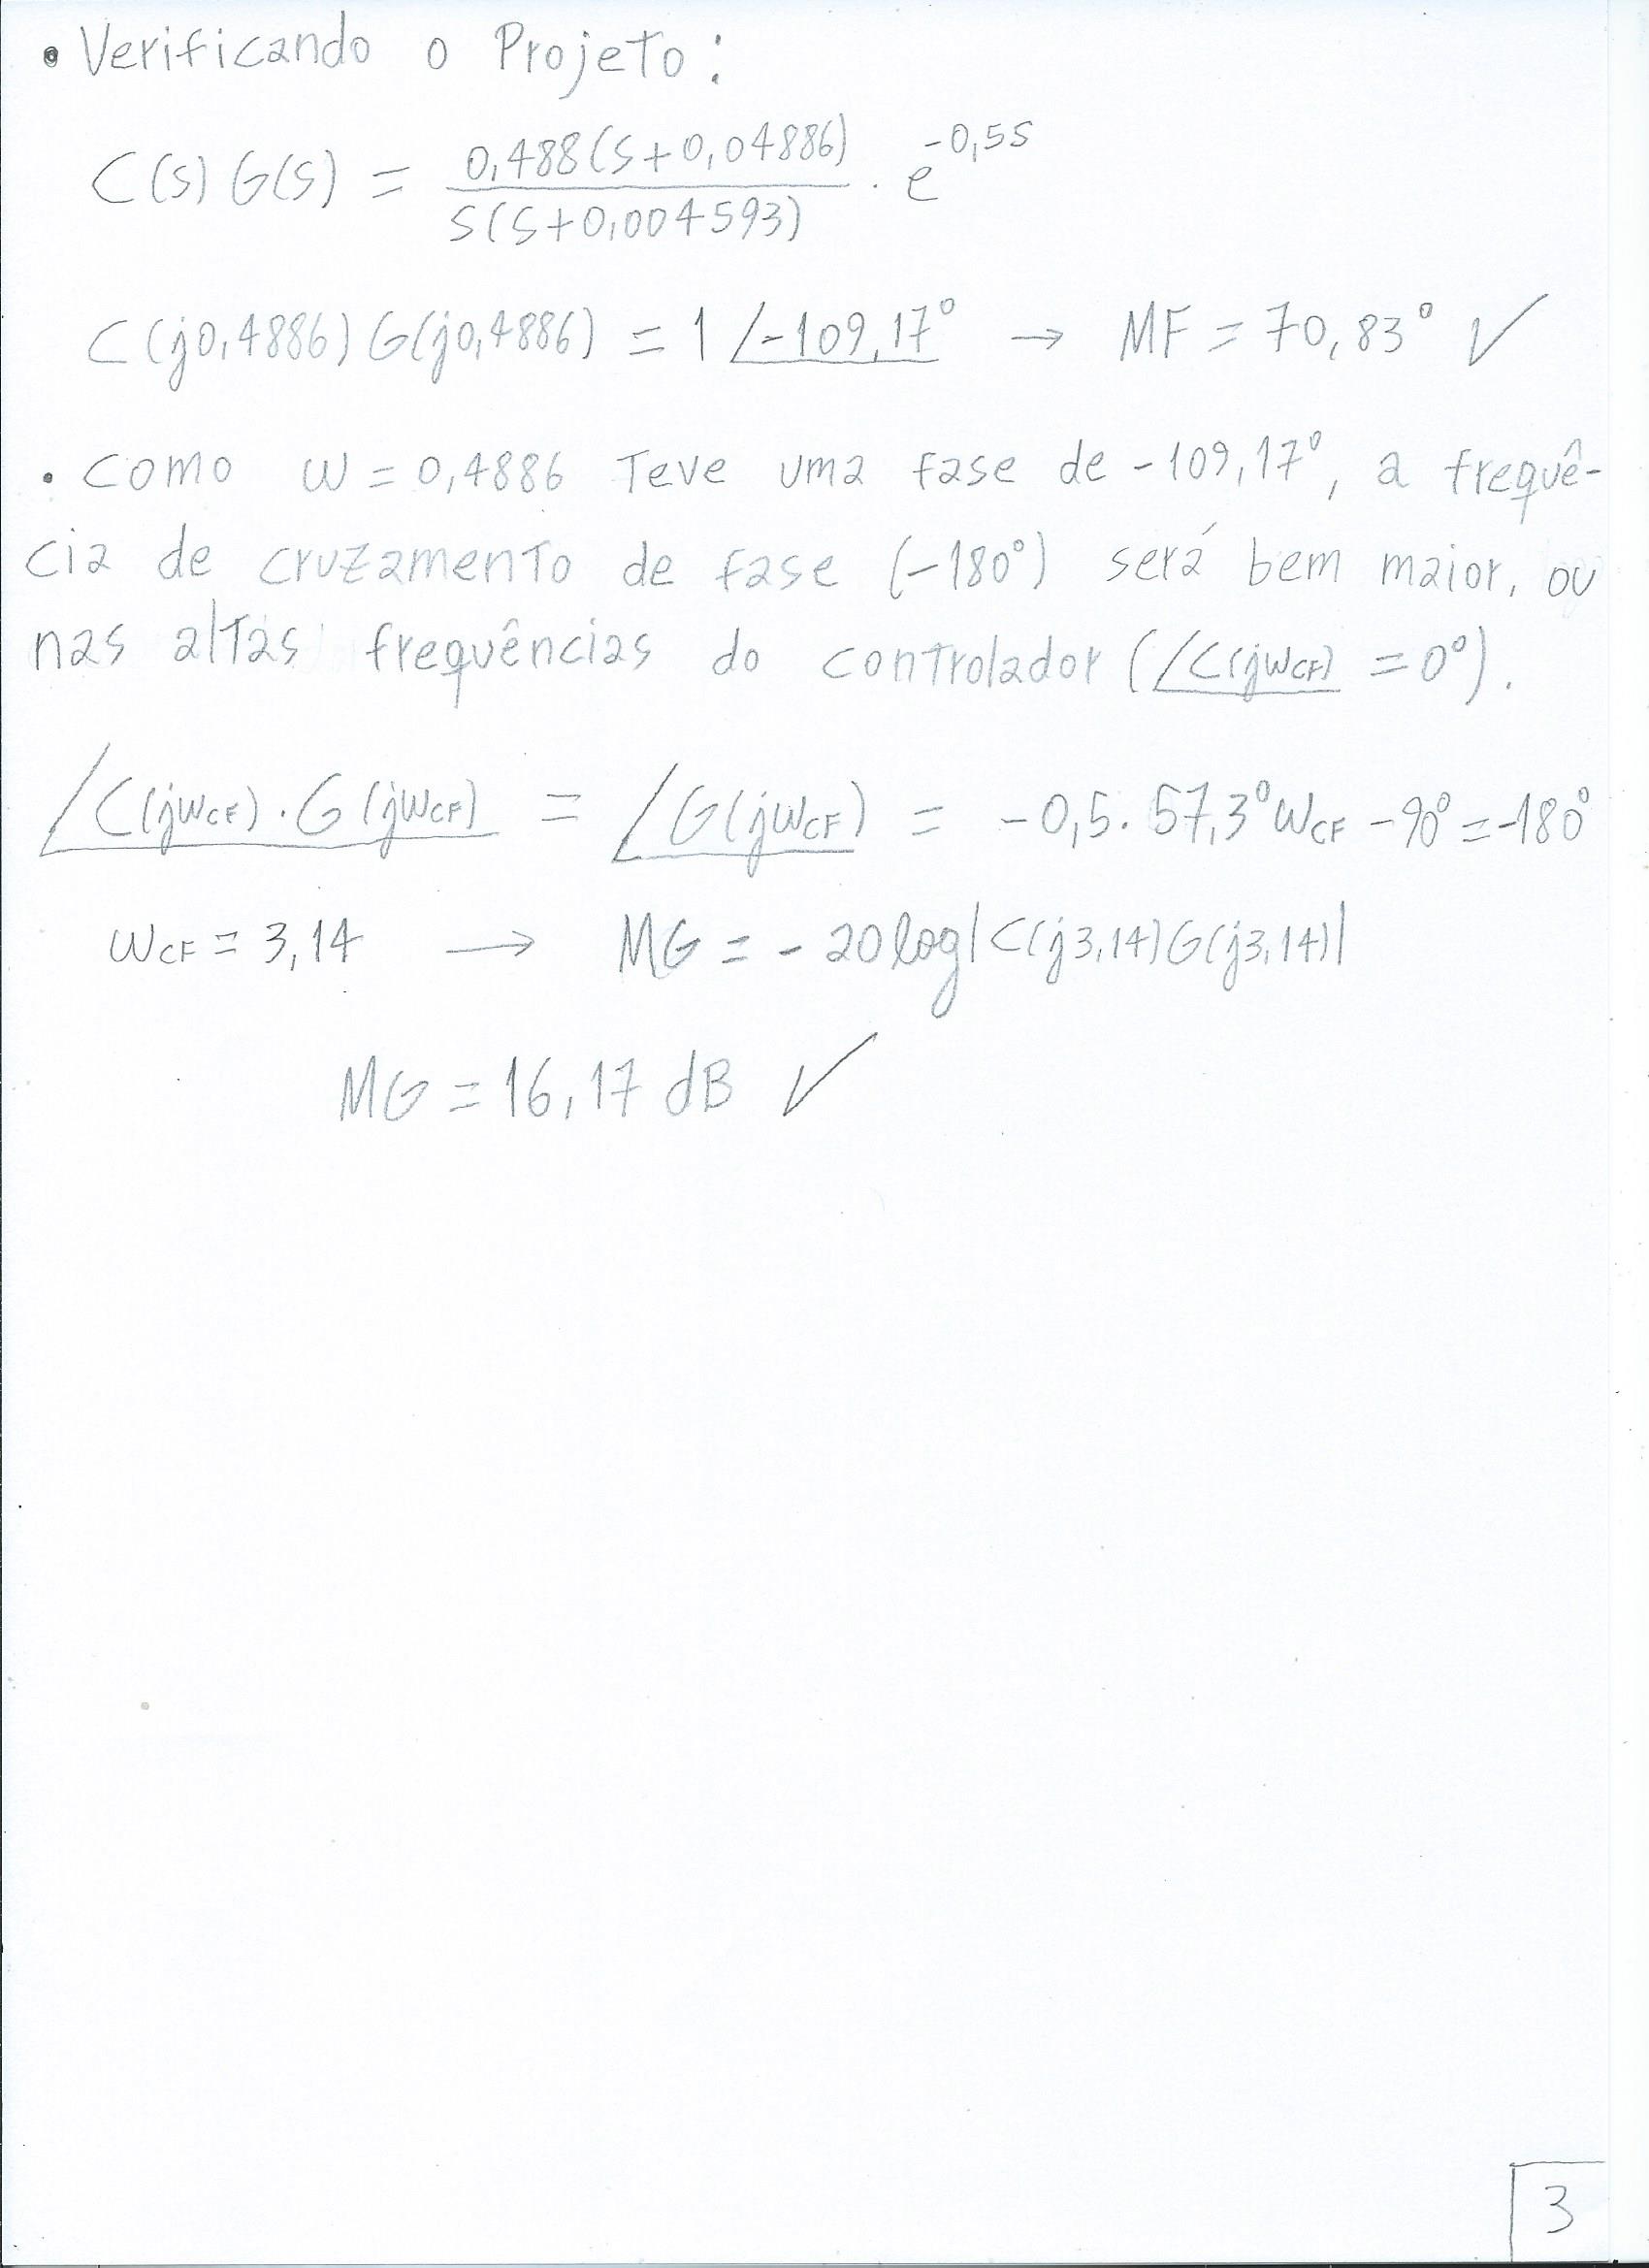 • Verificando o Projeto:
C(s)G(s) = 0,488(s+0,04886) / s(s+0,004593) · e^-0,5s
C(j0,4886)G(j0,4886) = 1 ∠-109,17° → MF = 70,83° ✓
• Como w = 0,4886 teve uma fase de -109,17°, a frequê-
cia de cruzamento de fase (-180°) será bem maior, ou
nas altas frequências do controlador (∠C(jwCF) = 0°).
∠C(jwCF)·G(jwCF) = ∠G(jwCF) = -0,5·57,3°wCF -90° = -180°
wCF = 3,14 → MG = -20log|C(j3,14)G(j3,14)|
MG = 16,17 dB ✓
3